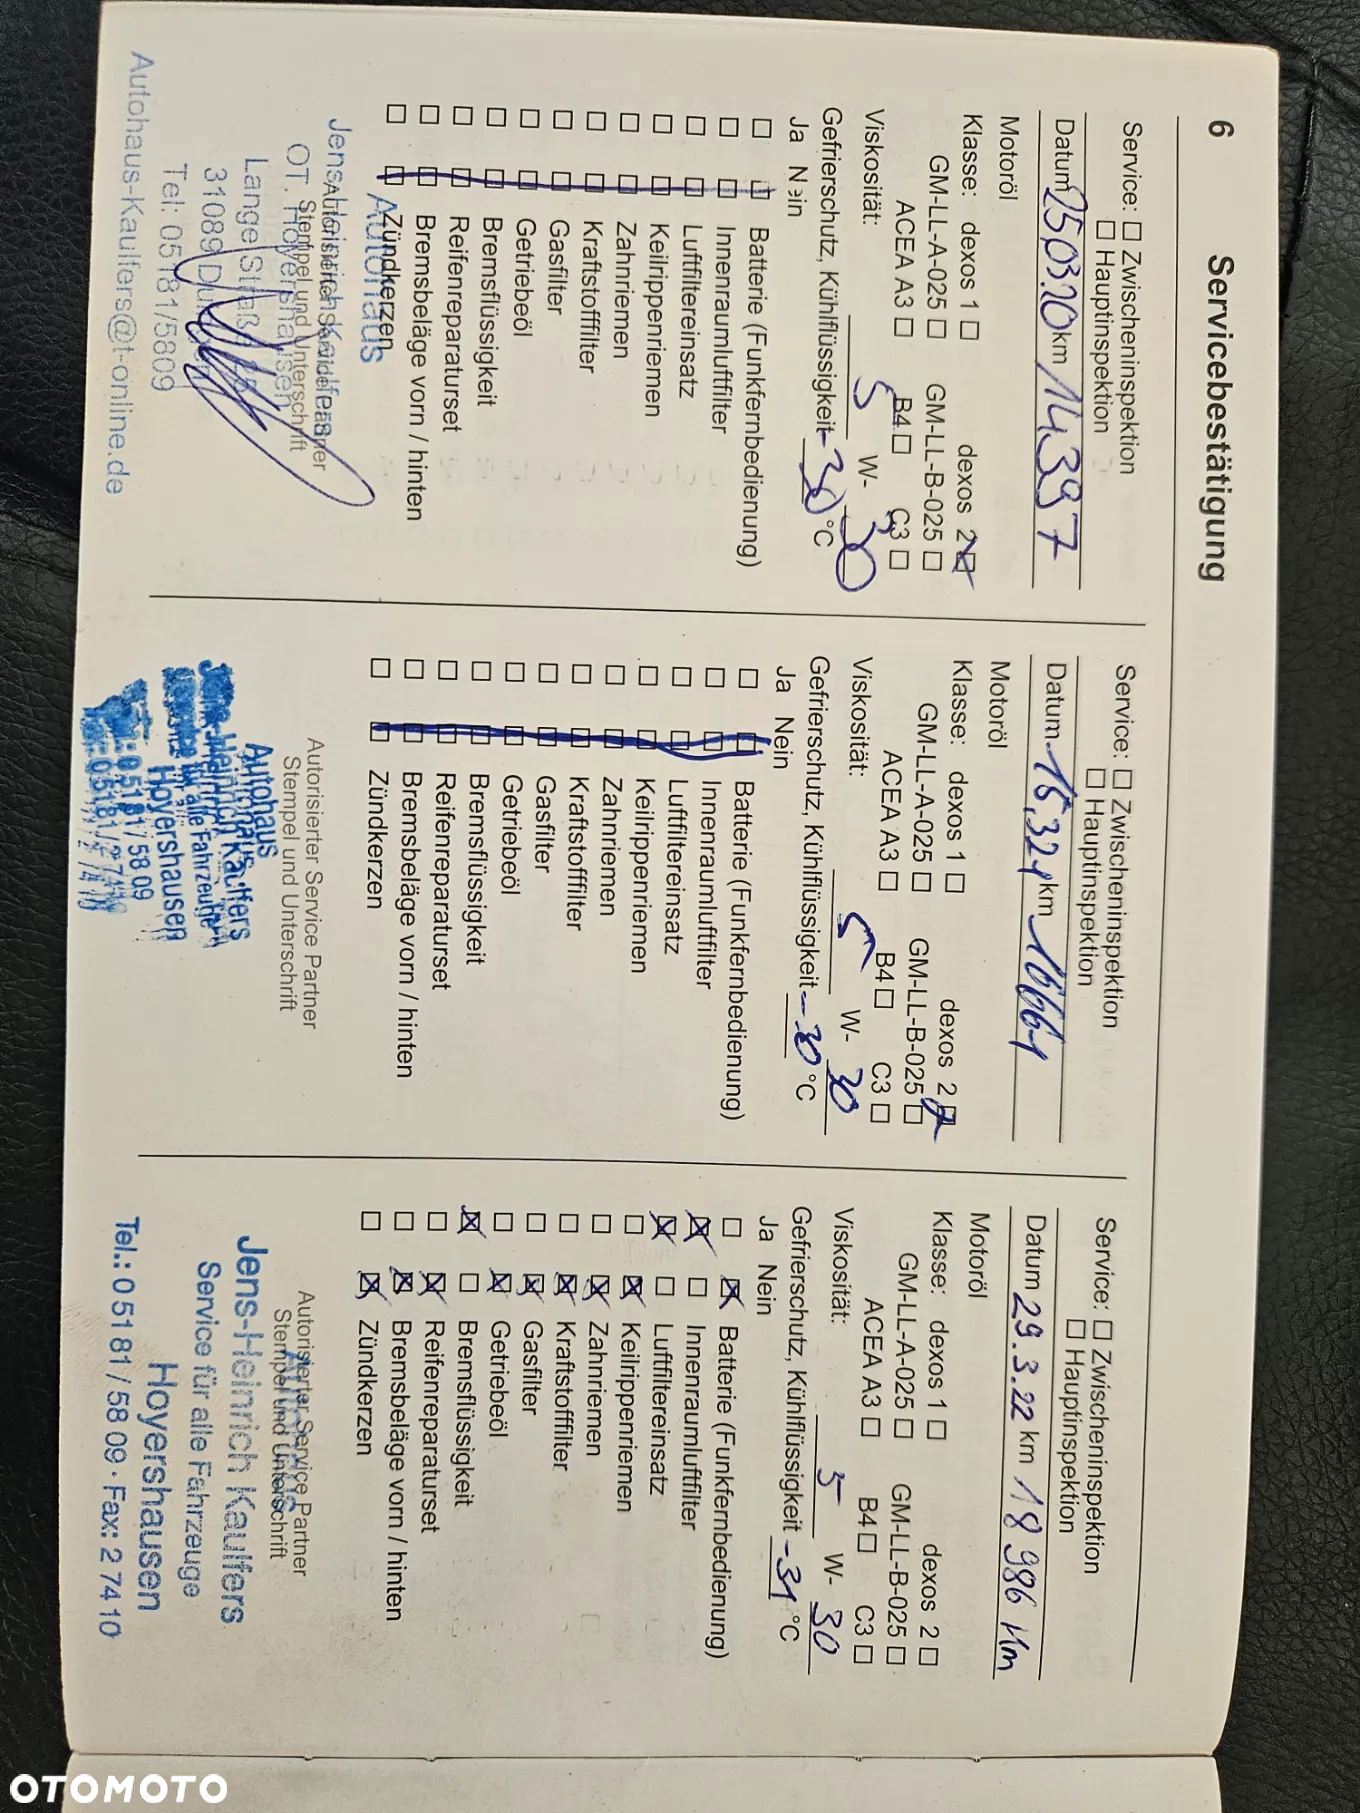 6 Servicebestätigung
Service: Zwischeninspektion
Hauptinspektion
Datum 25.03.20 km 14.397
Motoröl
Klasse: dexos 1 dexos 2
GM-LL-A-025 GM-LL-B-025
ACEA A3 B4 C3
Viskosität: 5 W- 30
Gefrierschutz, Kühlflüssigkeit -30 °C
Ja Nein
Batterie (Funkfernbedienung)
Innenraumluftfilter
Luftfiltereinsatz
Keilrippenriemen
Zahnriemen
Kraftstofffilter
Gasfilter
Getriebeöl
Bremsflüssigkeit
Reifenreparaturset
Bremsbeläge vorn / hinten
Zündkerzen
Autohaus
Autorisierter Service Partner
Stempel und Unterschrift
Jens-Heinrich Kaulfers
OT. Hoyershausen
Lange Straße
31089
Tel: 05181/5809
Autohaus-Kaulfers@t-online.de
Service: Zwischeninspektion
Hauptinspektion
Datum 15.3.21 km 16661
Motoröl
Klasse: dexos 1 dexos 2
GM-LL-A-025 GM-LL-B-025
ACEA A3 B4 C3
Viskosität: 5 W- 30
Gefrierschutz, Kühlflüssigkeit -30 °C
Ja Nein
Batterie (Funkfernbedienung)
Innenraumluftfilter
Luftfiltereinsatz
Keilrippenriemen
Zahnriemen
Kraftstofffilter
Gasfilter
Getriebeöl
Bremsflüssigkeit
Reifenreparaturset
Bremsbeläge vorn / hinten
Zündkerzen
Autorisierter Service Partner
Stempel und Unterschrift
Autohaus
Jens-Heinrich Kaulfers
Service für alle Fahrzeuge
Hoyershausen
05181 / 58 09
Service: Zwischeninspektion
Hauptinspektion
Datum 29.3.22 km 18 986 Km
Motoröl
Klasse: dexos 1 dexos 2
GM-LL-A-025 GM-LL-B-025
ACEA A3 B4 C3
Viskosität: 5 W- 30
Gefrierschutz, Kühlflüssigkeit -31 °C
Ja Nein
Batterie (Funkfernbedienung)
Innenraumluftfilter
Luftfiltereinsatz
Keilrippenriemen
Zahnriemen
Kraftstofffilter
Gasfilter
Getriebeöl
Bremsflüssigkeit
Reifenreparaturset
Bremsbeläge vorn / hinten
Zündkerzen
Autorisierter Service Partner
Stempel und Unterschrift
Autohaus
Jens-Heinrich Kaulfers
Service für alle Fahrzeuge
Hoyershausen
Tel.: 0 51 81 / 58 09 · Fax: 2 74 10
OTOMOTO